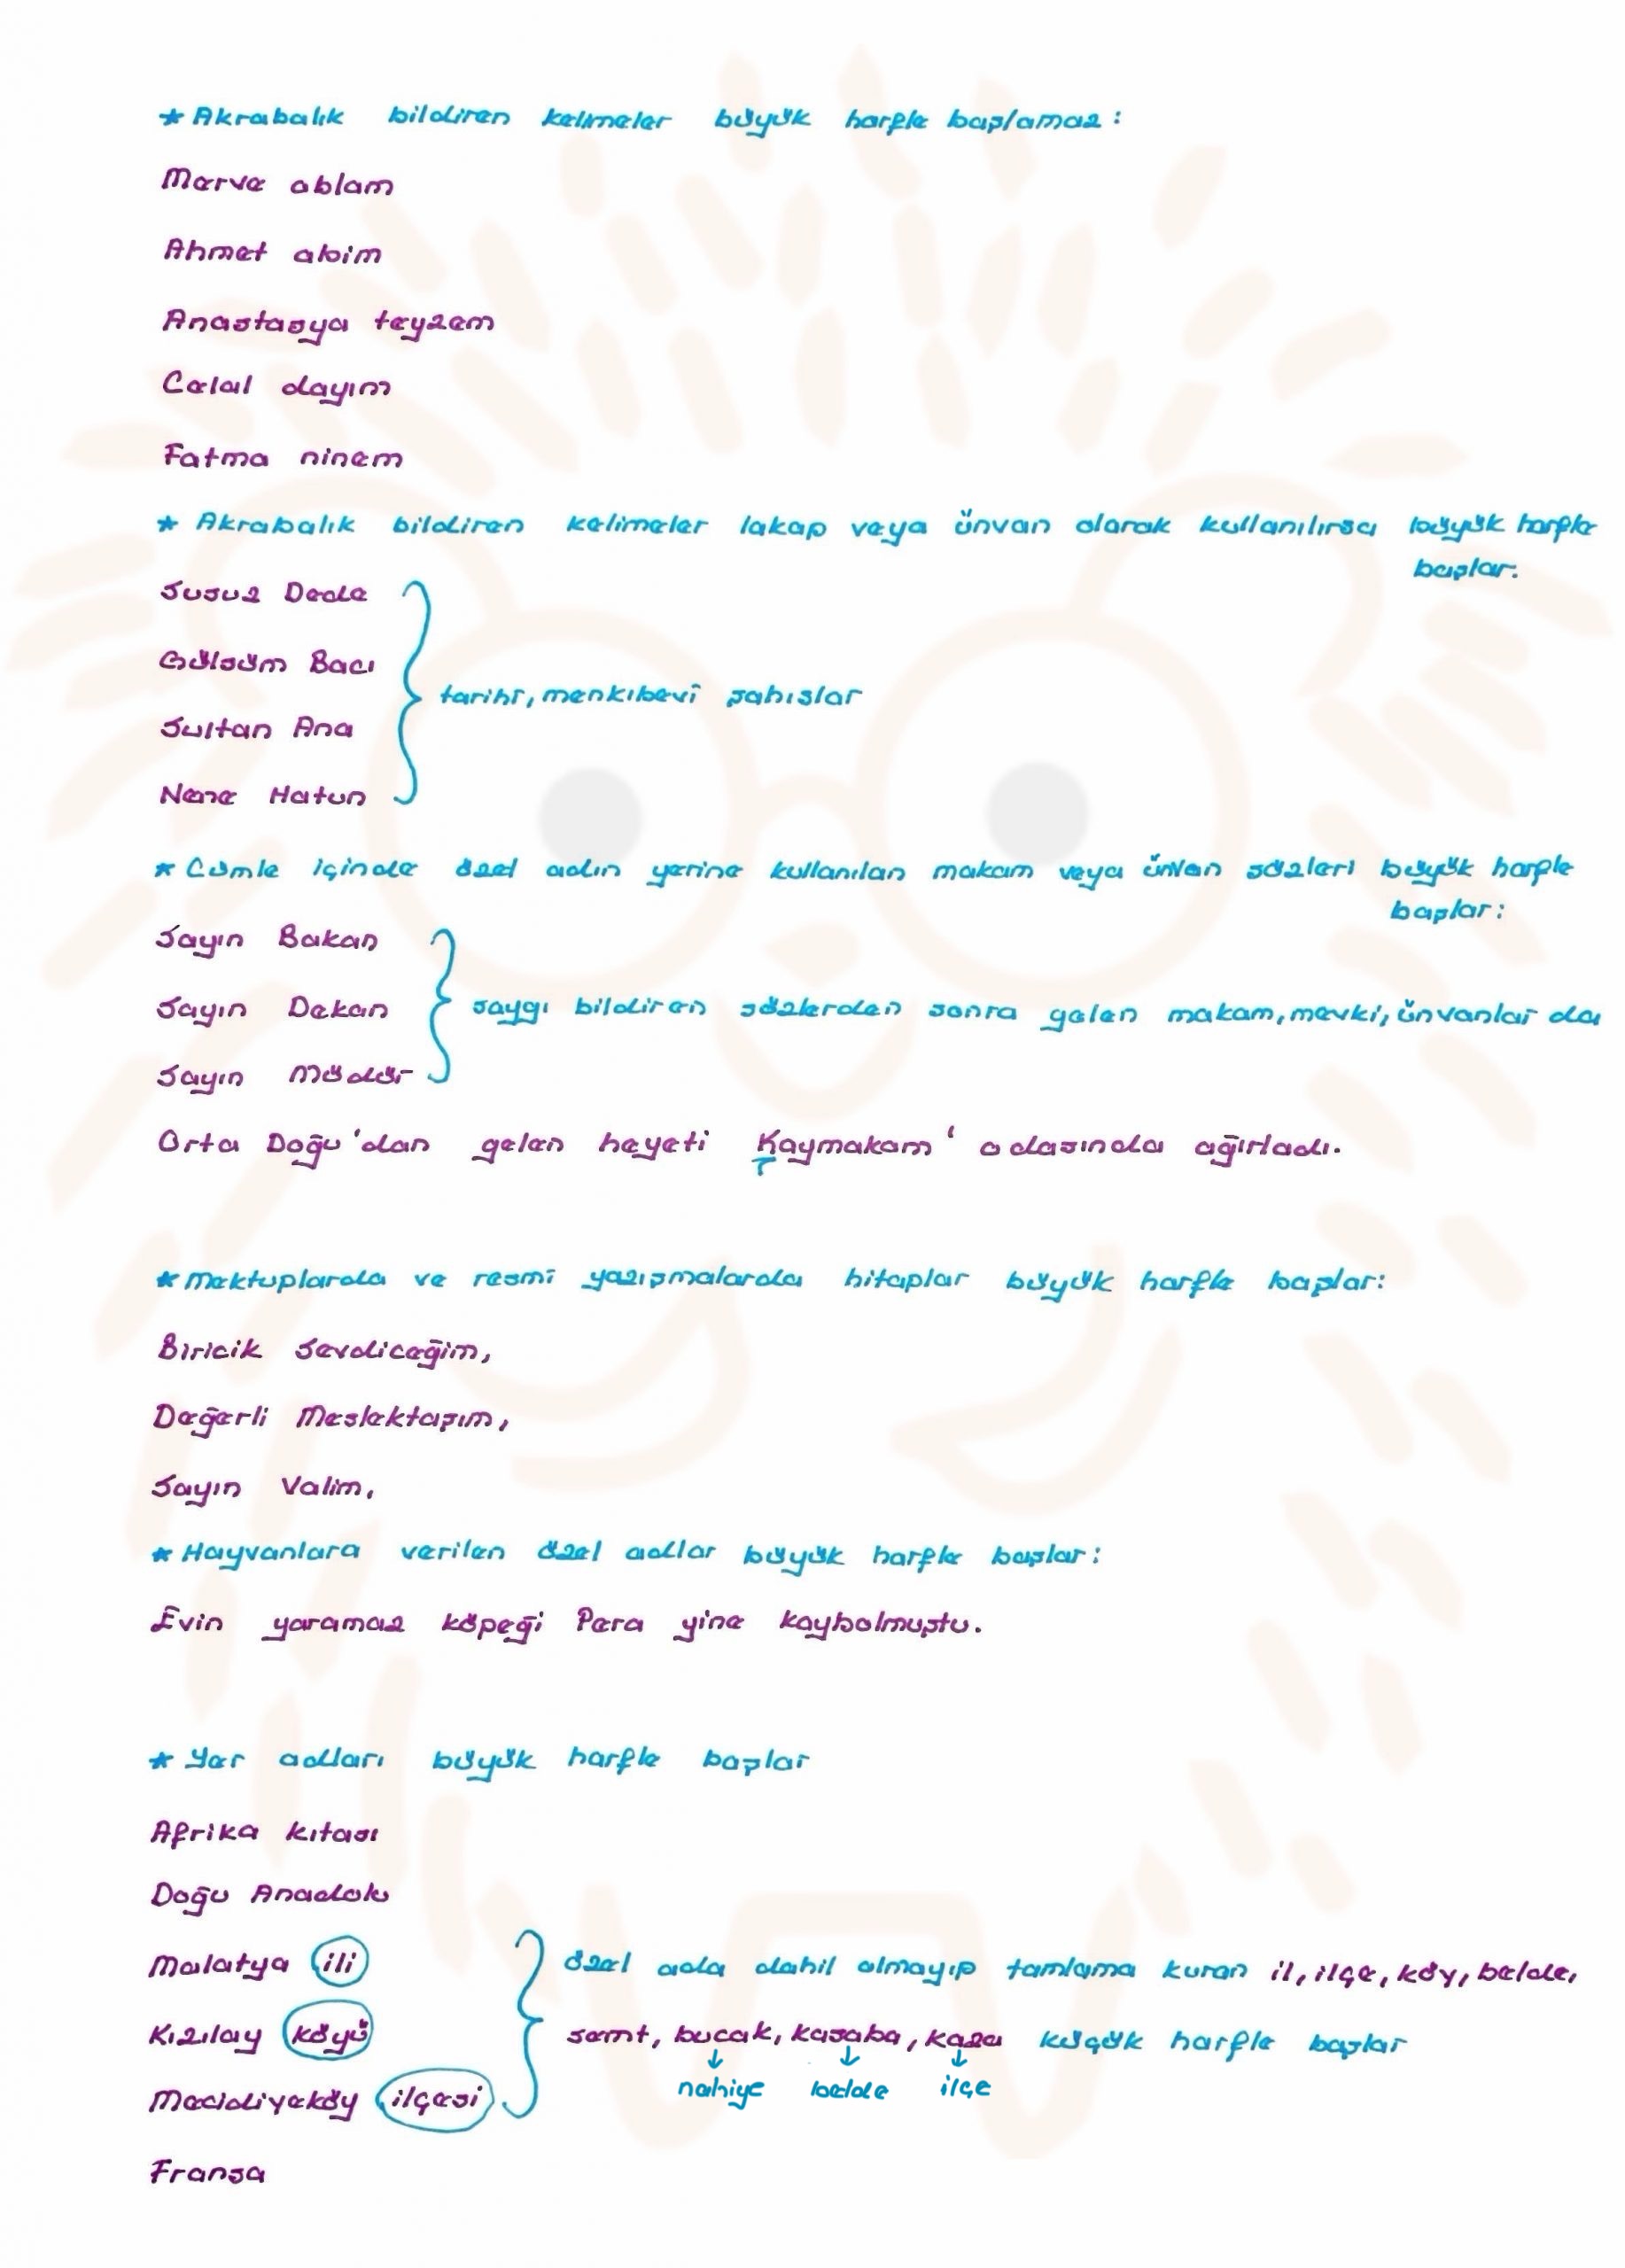 * Akrabalık bildiren kelimeler büyük harfle başlamaz:
Merve ablam
Ahmet abim
Anastasya teyzem
Celal dayım
Fatma ninem
* Akrabalık bildiren kelimeler lakap veya ünvan olarak kullanılırsa büyük harfle
başlar:
Susuz Dede
Gülsüm Bacı
Sultan Ana
Nene Hatun
tarihî, menkıbevî şahıslar
* Cümle içinde özel adın yerine kullanılan makam veya ünvan sözleri büyük harfle
başlar:
Sayın Bakan
Sayın Dekan
Sayın Müdür
saygı bildiren sözlerden sonra gelen makam, mevki, ünvanlar da
Orta Doğu'dan gelen heyeti Kaymakam ' odasında ağırladı.
* Mektuplarda ve resmî yazışmalarda hitaplar büyük harfle başlar:
Biricik Sevdiceğim,
Değerli Meslektaşım,
Sayın Valim,
* Hayvanlara verilen özel adlar büyük harfle başlar:
Evin yaramaz köpeği Pera yine kaybolmuştu.
* Yer adları büyük harfle başlar
Afrika kıtası
Doğu Anadolu
Malatya ili
Kızılay köyü
Mecidiyeköy ilçesi
özel ada dahil olmayıp tamlama kuran il, ilçe, köy, belde,
semt, bucak, kasaba, kaza küçük harfle başlar
↓ ↓ ↓
nahiye belde ilçe
Fransa